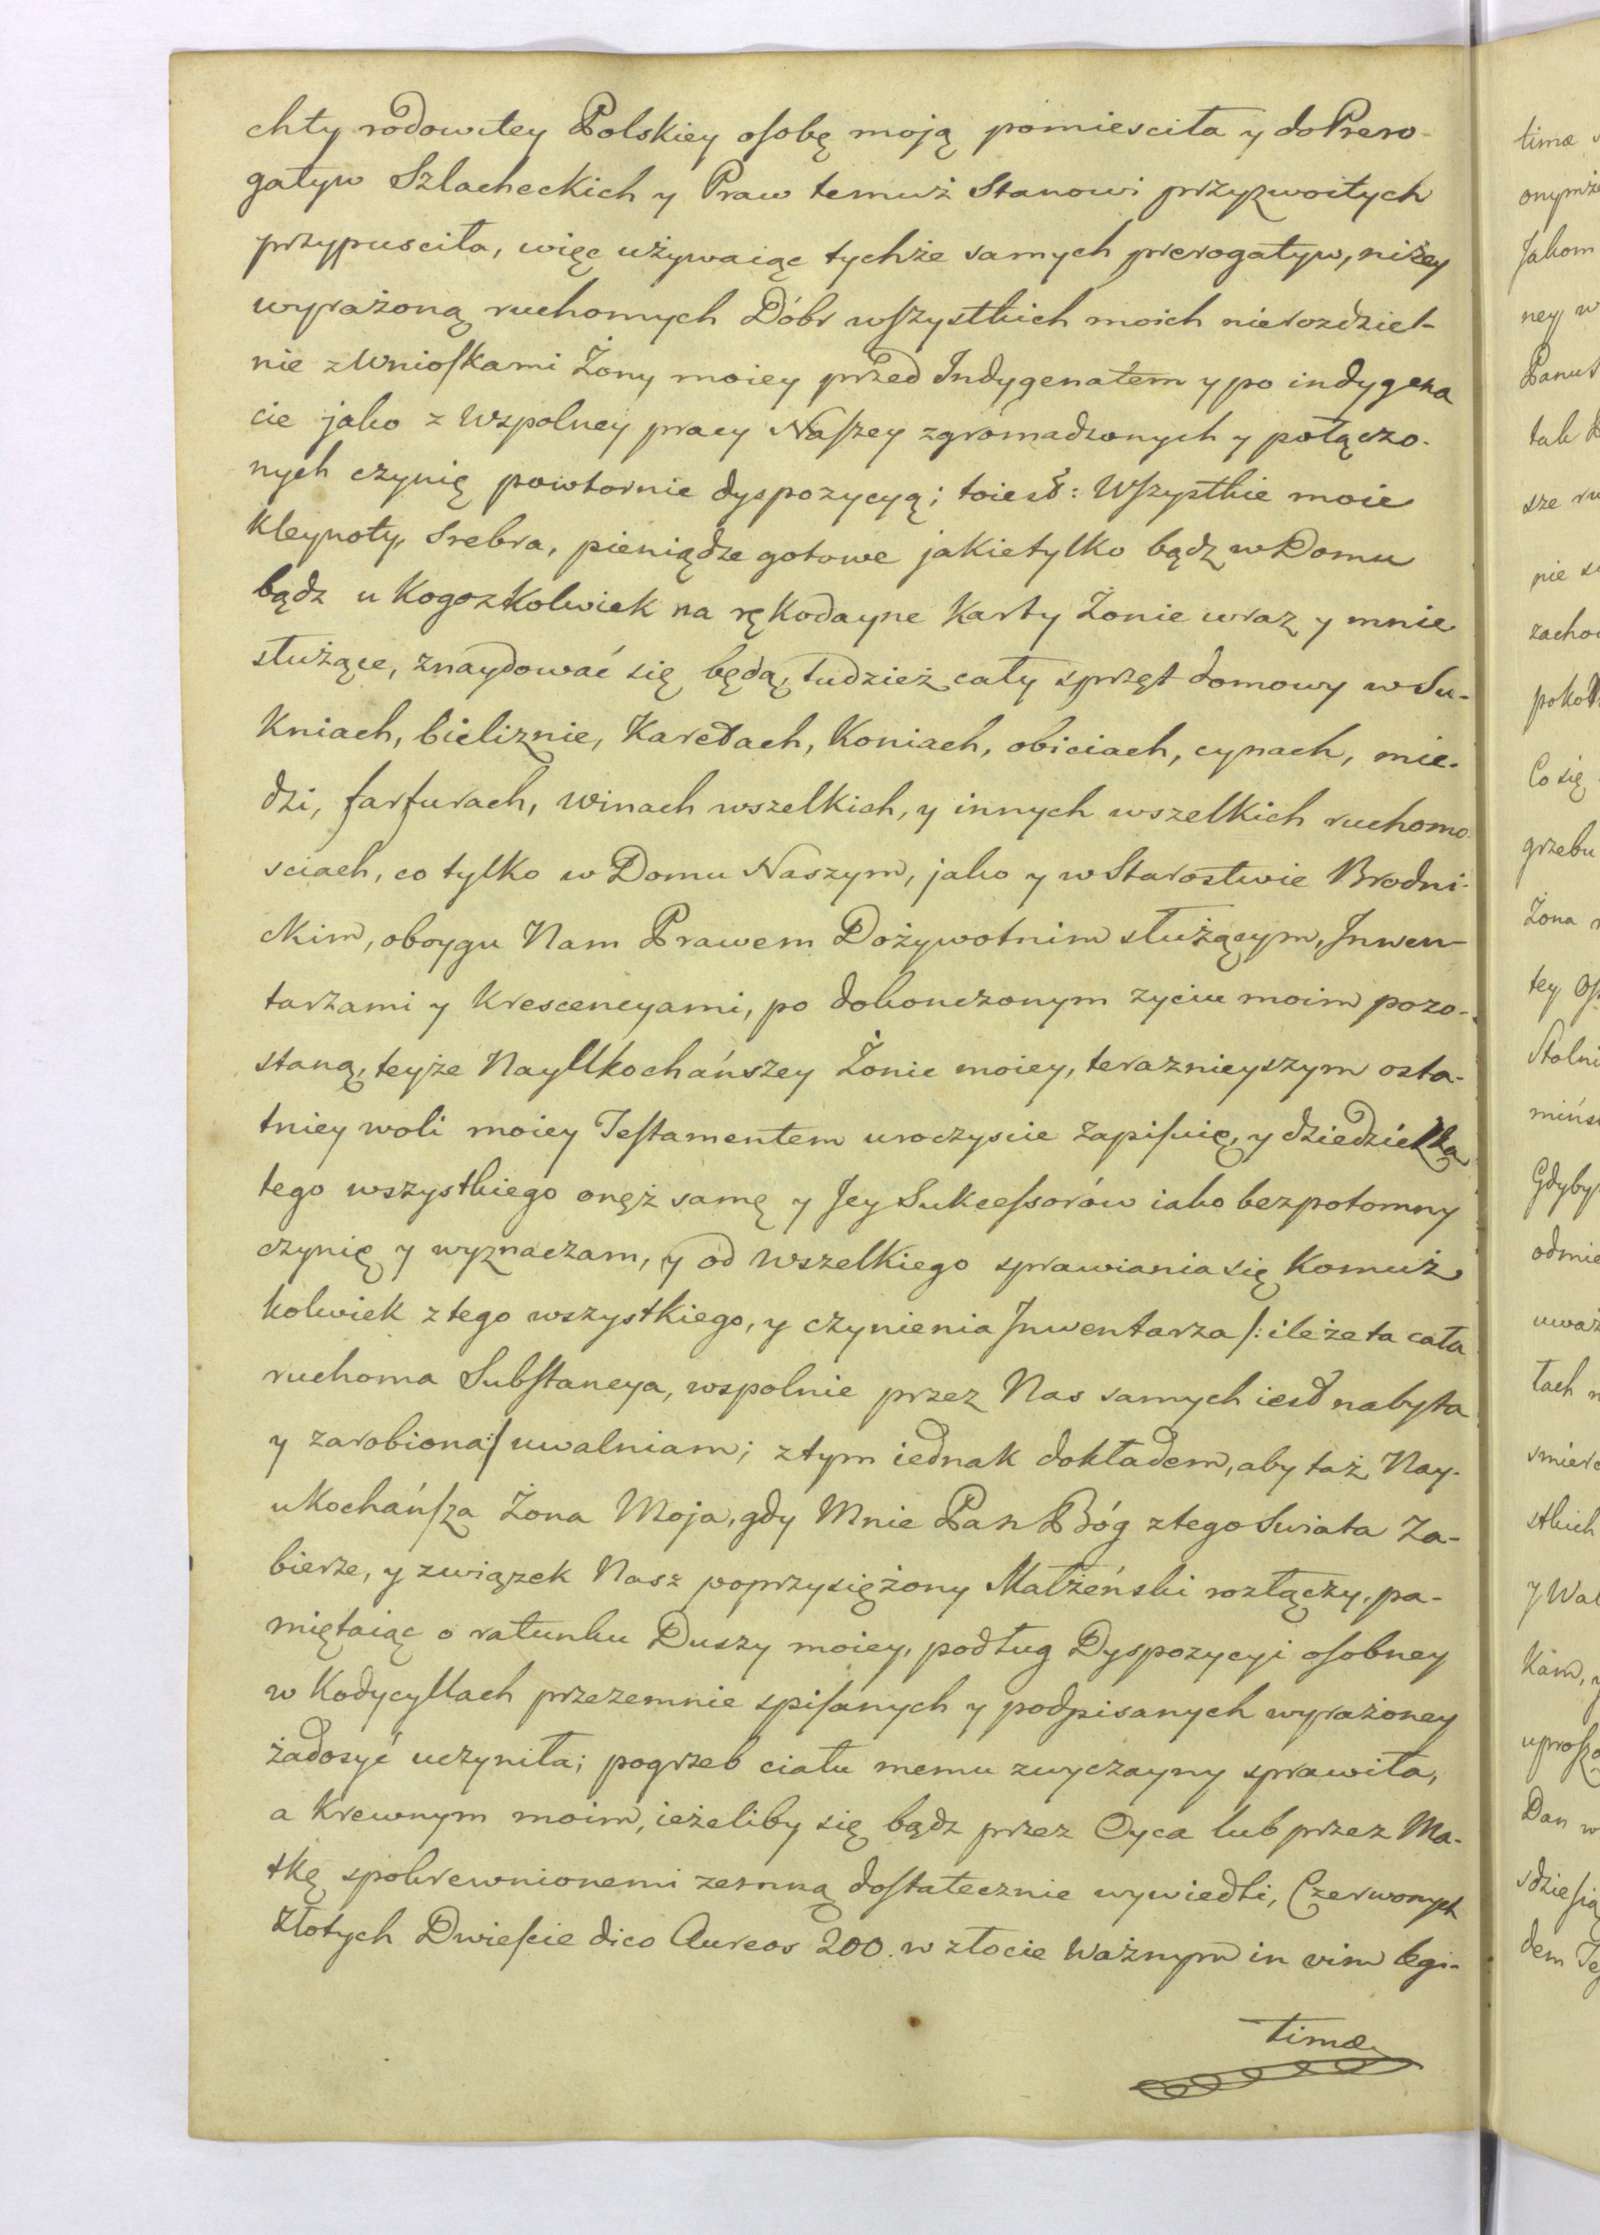 chty rodowitey Polskiey osobę moją pomiescita y do Prero-
gatyw Szlacheckich y Praw temuż Stanowi przyzwoitych
przypuscita, więc używaiąc tychże samych prerogatyw, niżey
wyrażoną ruchomych Dóbr wszystkich moich nierozdziel-
nie z Wnioskami Żony moiey przed Indygenatem y po indygena
cie jako z Wspolney pracy Naszey zgromadzonych y połączo-
nych czynię powtornie dyspozycyą; toiest: Wszystkie moie
Kleynoty, Srebra, pieniądze gotowe jakietylko bądz w Domu
bądz u Kogozkolwiek na rękodayne Karty Żonie wraz y mnie
służące, znaydować się będą, tudzież cały sprzęt domowy w Su-
kniach, bieliznie, Karetach, Koniach, obiciach, cynach, mie-
dzi, farfurach, Winach wszelkich, y innych wszelkich ruchomo-
sciach, co tylko w Domu Naszym, jako y w Starostwie Brodni-
ckim, oboygu Nam Prawem Dożywotnim służącym, Inwen-
tarzami y Krescencyami, po dokonczonym zyciu moim pozo-
staną, teyże NayUkochańszey Żonie moiey, teraznieyszym osta-
tniey woli moiey Testamentem uroczyscie zapisuię, y dziedziczką
tego wszystkiego onęż samę y Jey Sukcessorów iako bezpotomny
czynię y wyznaczam, y od Wszelkiego sprawiania się Komuż
kolwiek z tego wszystkiego, y czynienia Inwentarza /: ile że ta cała
ruchoma Substancya, wspolnie przez Nas samych iest nabyta
y zarobiona :/ uwalniam; z tym iednak dokładem, aby taż Nay-
ukochańsza Żona Moja, gdy Mnie Pan Bóg z tego Swiata Za-
bierze, y związek Nasz poprzysiężony Małżeński rozłączy, pa-
miętaiąc o ratunku Duszy moiey, podług Dyspozycyi osobney
w Kodycyllach przezemnie spisanych y podpisanych wyrażoney
żadosyć uczyniła; pogrzeb ciału memu zwyczayny sprawiła,
a Krewnym moim, ieżeliby się bądz przez Oyca lub przez Ma-
tkę spokrewnionemi zemną dostatecznie wywiedli, Czerwonych
Złotych Dwiescie dico Aureos 200. w złocie Ważnym in vim legi-
timæ
timæ
onymże
Jakom
ney w
Panus
tak
sze ru
nie
zacho
Co się
grzebu
Żona
tey
Stolni
mińs
Gdyby
odmie
uważ
tach
smierc
stkich
Y Wal
Kam, y
uprosz
Dan w
dziesią
dem